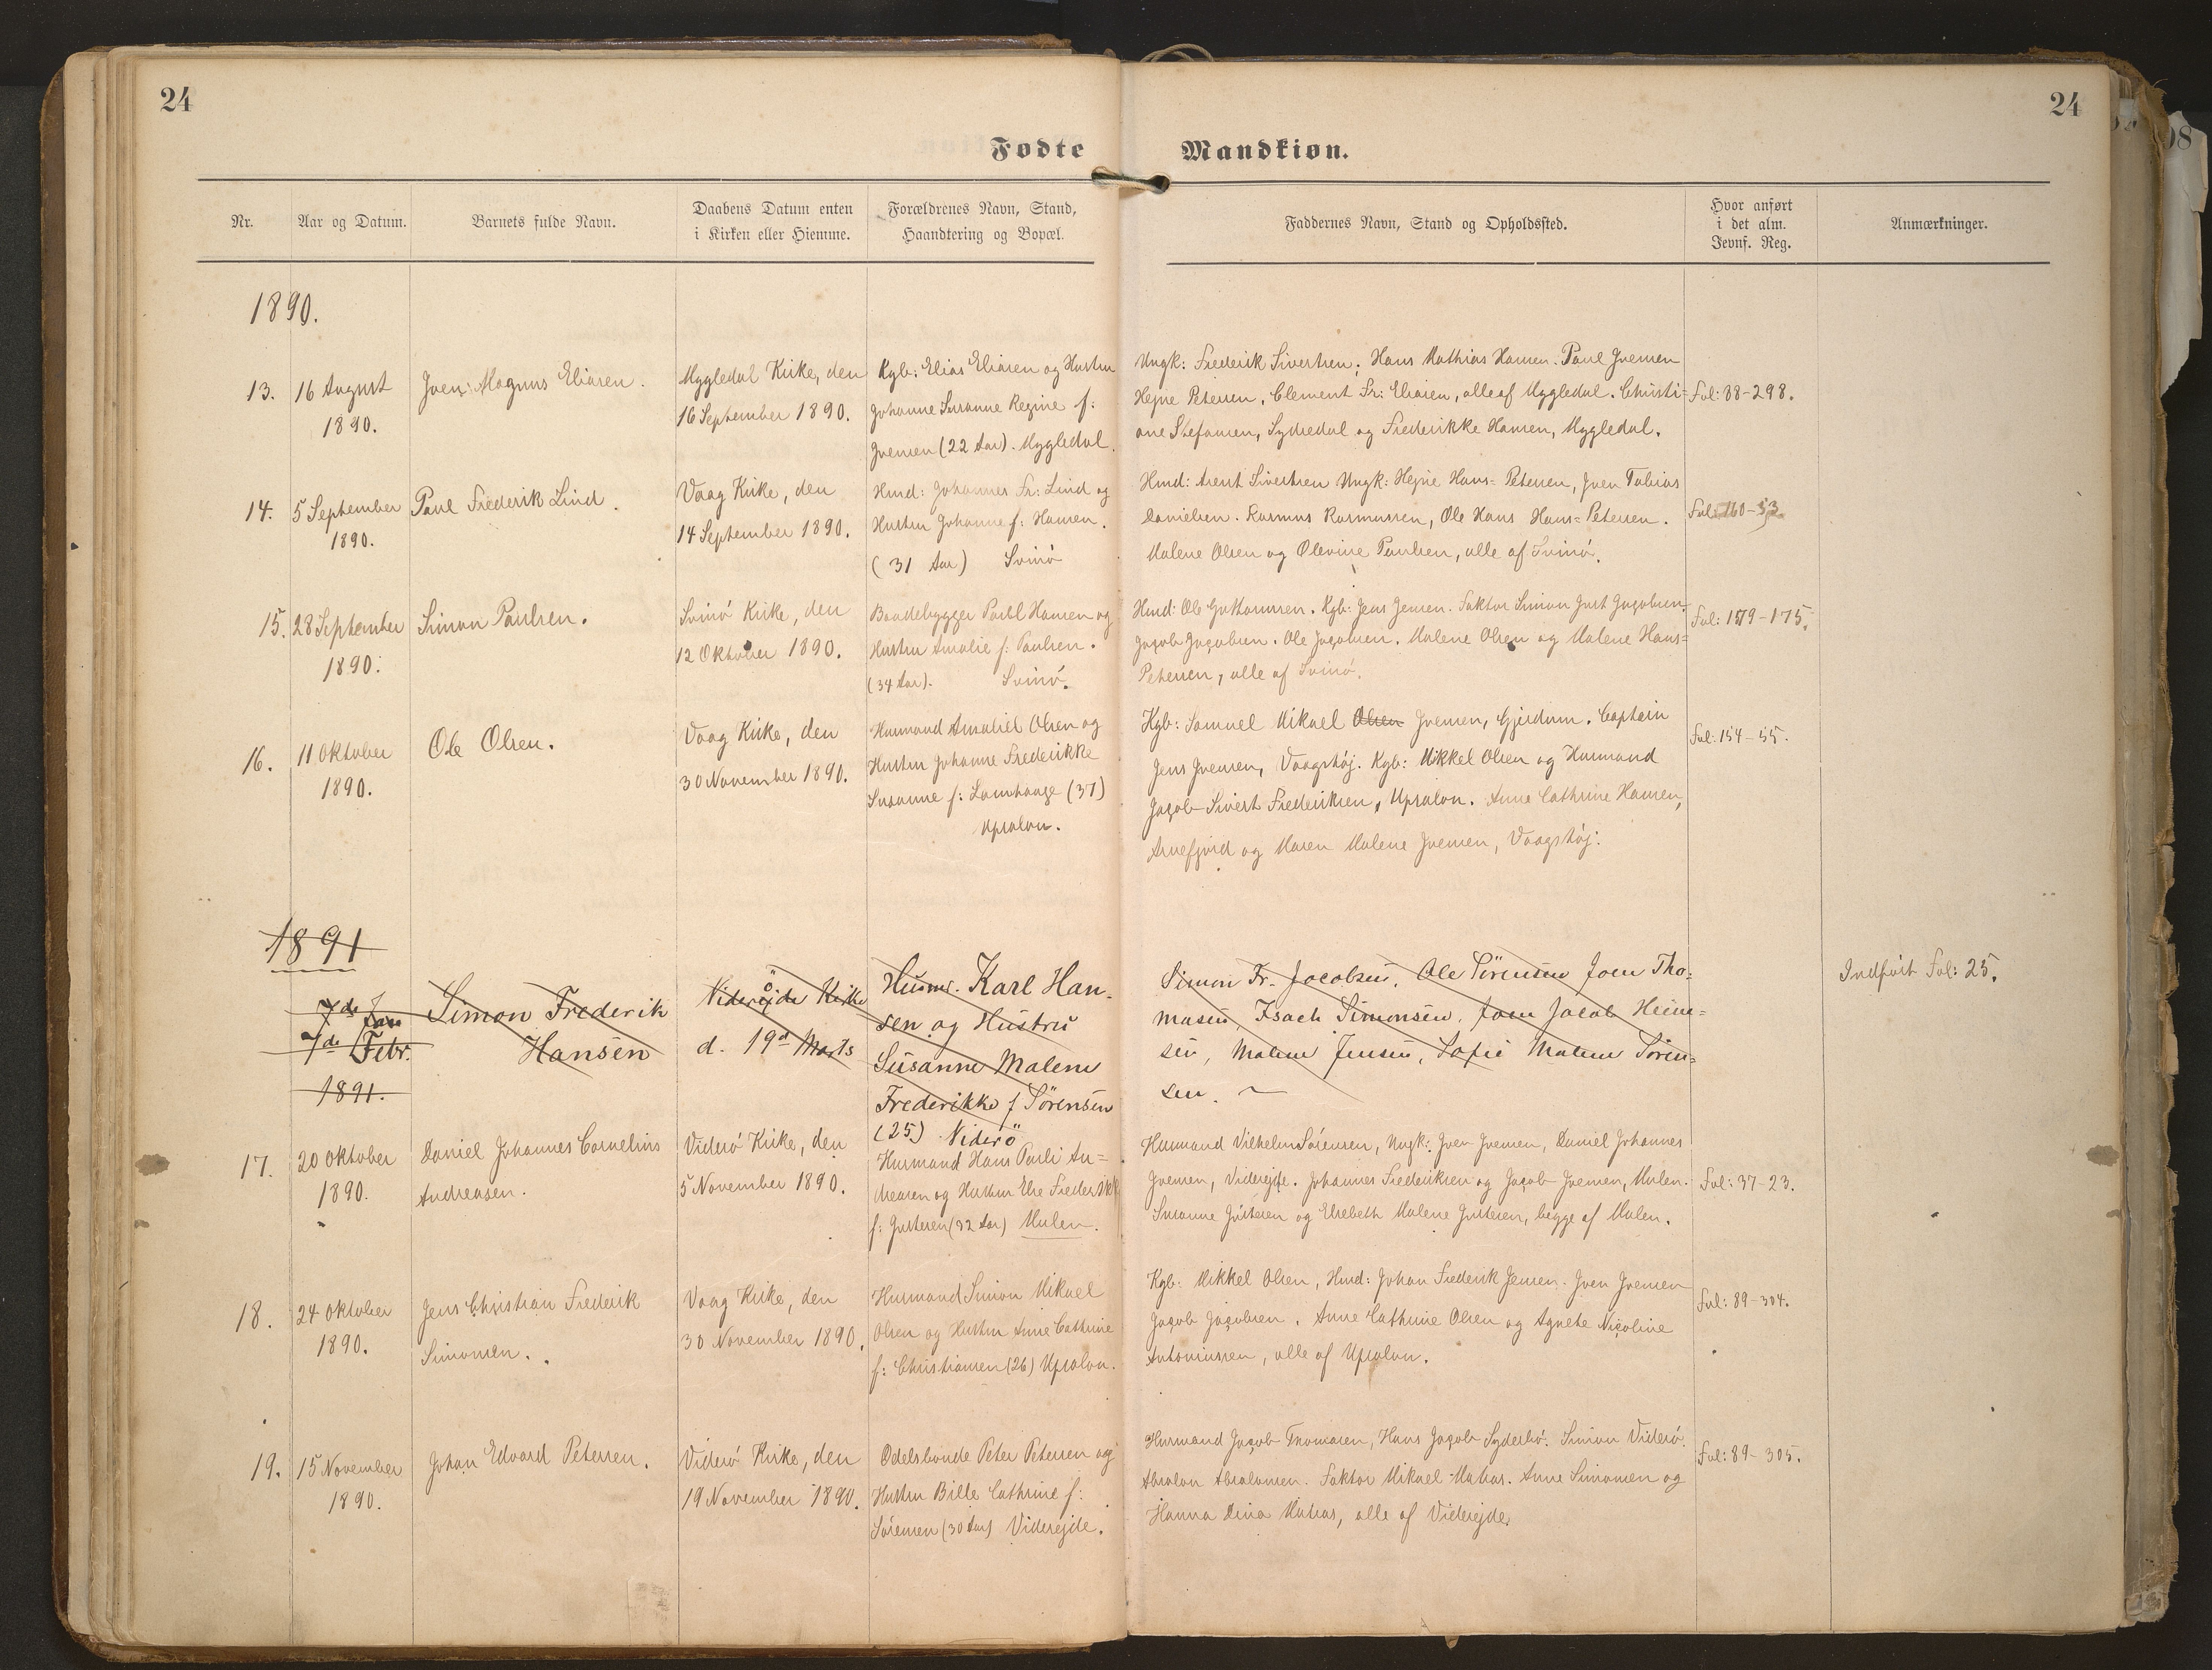 24
24
Fødte
Mandkiøn.
Nr.
Aar og Datum.
Barnets fulde Navn.
Daabens Datum enten
i Kirken eller Hiemme.
Forældrenes Navn, Stand,
Haandtering og Bopæl.
Faddernes Navn, Stand og Opholdssted.
Hvor anført
i det alm.
Jevnf. Reg.
Anmærkninger.
1890.
13.
16 August
1890.
Jven Magnus Eliasen.
Mygledal Kirke, den
16 September 1890.
Kgb: Elias Eliasen og Hustru
Johanne Susanne Regine f:
Jvensen (22 Aar). Mygledal.
Ungk: Frederik Sivertsen; Hans Mathias Hansen. Paul Jvensen
Hejne Petersen, Clement Fr: Eliasen, alle af Mygledal. Christi=
ane Stefansen, Sydredal og Frederikke Hansen, Mygledal.
Fol: 88-298.
14.
5 September
1890.
Paul Frederik Lind.
Vaag Kirke, den
14 September 1890.
Hmd: Johannes Fr: Lind og
Hustru Johanne f: Hansen.
(31 Aar) Svinö
Hmd: Arent Sivertsen Ungk: Hejne Hans=Petersen, Jven Tobias
Danielsen. Rasmus Rasmussen, Ole Hans Hans=Petersen.
Malene Olsen og Olevine Paulsen, alle af Svinö.
Fol: 160-53.
15.
28 September
1890.
Simon Paulsen.
Svinö Kirke, den
12 Oktober 1890.
Baadebygger Paul Hansen og
Hustru Amalie f: Paulsen.
(34 Aar). Svinö.
Hmd: Ole Guttormsen. Kgb: Jens Jensen. Faktor Simon Just Jacobsen.
Jacob Jacobsen. Ole Jacobsen. Malene Olsen og Malene Hans=
Petersen, alle af Svinö.
16.
11 Oktober
1890.
Ole Olsen.
Vaag Kirke, den
30 November 1890.
Husmand Amaliel Olsen og
Hustru Johanne Frederikke
Susanne f: Lamhauge (37)
Upsalon.
Kgb: Samuel Mikael Olsen Jvensen, Gjerdum. Captein
Jens Jvensen, Vaagshöj. Kgb: Mikkel Olsen og Husmand
Jacob Sivert Frederiksen, Upsalon. Anne Cathrine Hansen,
Arnefjord og Maren Malene Jvensen, Vaagshöj.
Fol: 154-55.
1891
7de Jan
7de Febr.
1891.
Simon Frederik
Hansen
Viderejde Kirke
d. 19d Marts
Husm. Karl Han-
sen og Hustru
Susanne Malene
Frederikke f Sørensen
(25) Viderö
Simon Fr. Jacobsen, Ole Sørensen Joen Tho=
masen, Isach Simonsen, Joen Jacob Heine=
sen, Malene Jensen, Sofie Malene Sören=
sen.
Indført Fol: 25.
17.
20 Oktober
1890.
Daniel Johannes Cornelius
Andreasen.
Viderö Kirke, den
5 November 1890.
Husmand Hans Pauli An=
dreasen og Hustru Else Frederikke
f: Justesen (32 Aar) Mulen.
Husmand Vilhelm Sörensen, Ungk: Jven Jvensen, Daniel Johannes
Jvensen, Viderejde. Johannes Frederiksen og Jacob Jvensen, Mulen.
Susanne Justesen og Elsebeth Malene Justesen, begge af Mulen.
Fol: 37-23.
18.
24 Oktober
1890.
Jens Christian Frederik
Simonsen.
Vaag Kirke, den
30 November 1890.
Husmand Simon Mikael
Olsen og Hustru Anne Cathrine
f: Christiansen (26) Upsalon.
Kgb: Mikkel Olsen, Hmd: Johan Frederik Jensen. Jven Jvensen
Jacob Jacobsen. Anne Cathrine Olsen og Agnete Nicoline
Antoniussen, alle af Upsalon.
Fol: 89-304.
19.
15 November
1890.
Johan Edvard Petersen.
Viderö Kirke, den
19 November 1890.
Odelsbonde Peter Petersen og
Hustru Bille Cathrine f:
Sörensen (30 Aar) Viderejde.
Husmand Jacob Thomasen, Hans Jacob Syderbö. Simon Viderö.
Absalon Absalonsen. Faktor Mikael Matras. Anne Simonsen og
Hanna Dina Matras, alle af Viderejde.
Fol: 89-305.